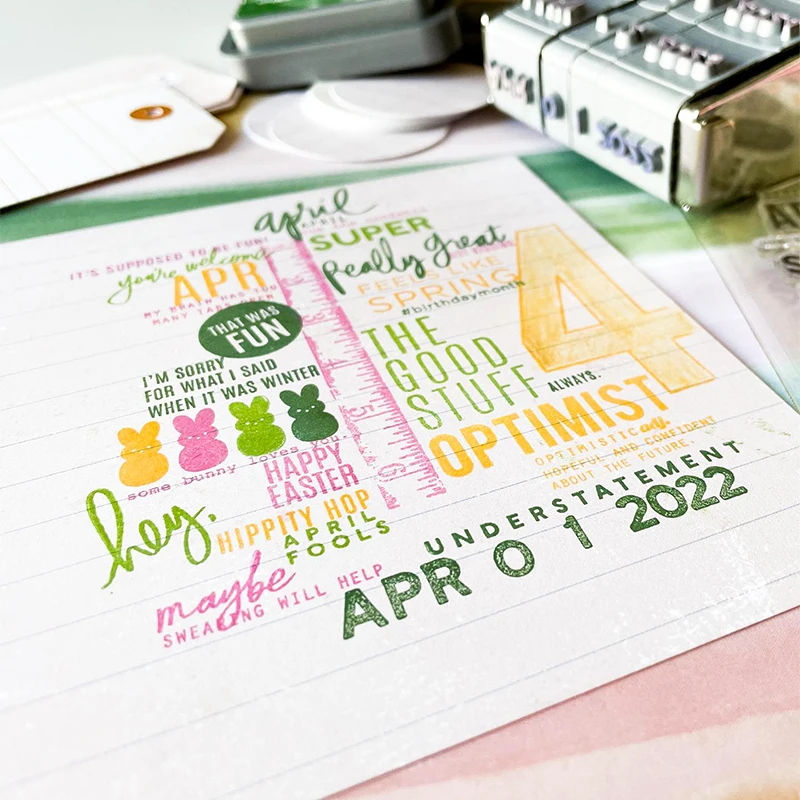 april
APRIL
IT'S SUPPOSED TO BE FUN!
you're welcome
APR
MY BRAIN HAS TOO
MANY TABS OPEN
THAT WAS
FUN
I'M SORRY
FOR WHAT I SAID
WHEN IT WAS WINTER
some bunny loves you.
HAPPY
EASTER
hey.
HIPPITY HOP
APRIL
FOOLS
maybe
SWEARING WILL HELP
SUPER
really great
FEELS LIKE
SPRING
#birthdaymonth
4
THE
GOOD
STUFF
ALWAYS.
OPTIMIST
OPTIMISTIC
HOPEFUL AND CONFIDENT
ABOUT THE FUTURE.
UNDERSTATEMENT
APR 0 1 2022